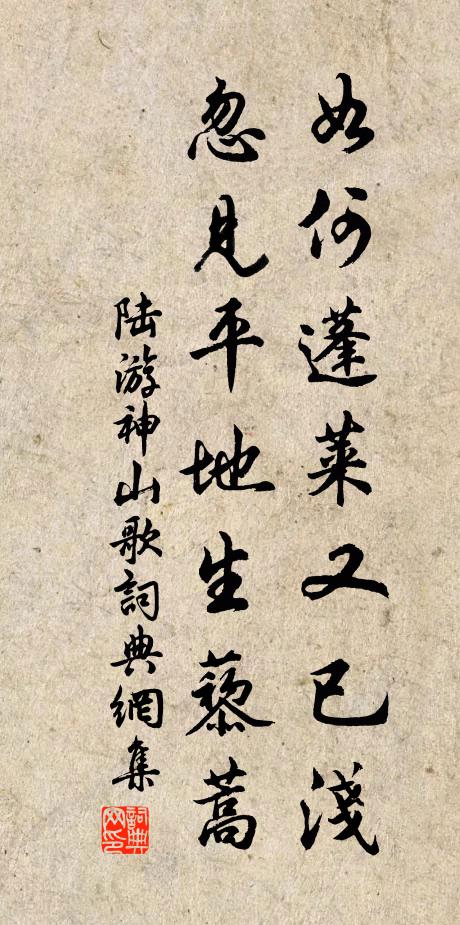 如何蓬萊又已淺
忽見平地生藜蒿
陆游神山歌詞典網集
詞典网印